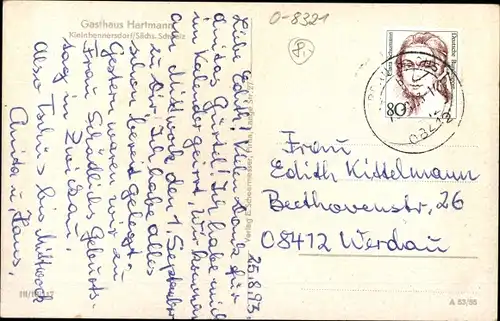 Gasthaus Hartmann
Kleinhennersdorf/Sächs. Schweiz
O-8321
Liebe Edith! Vielen Dank für
Anitas Gürtel! Ich habe mich
im Kalender geirrt, Wir kommen
am Mittwoch, den 1. September
zu Dir, Ich habe alles
schon bereit gelegt.
Gestern waren wir zu
Frau Schädlichs Geburts-
tag in Zwickau.
Also Tschüs bis Mittwoch
Anita u. Hans,
25.8.93.
Deutsche Bundespost
80
08412
Frau
Edith Kittelmann
Beethovenstr. 26
08412 Werdau
A 53/56